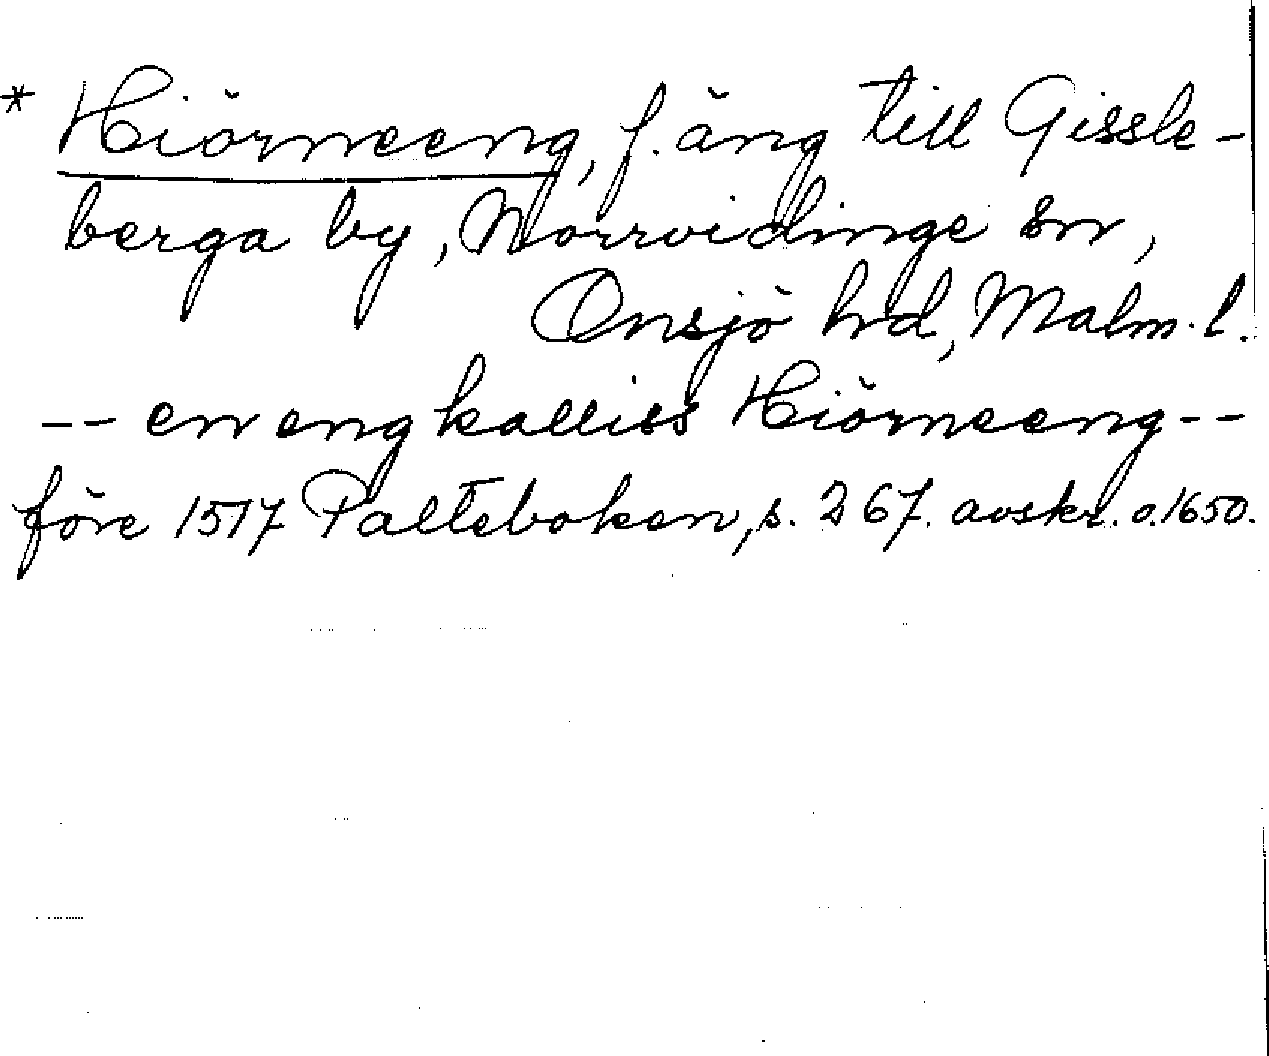 * Hiörneeng, f. äng till Gissle-
berga by, Norrvidinge sn,
Onsjö hrd, Malm. l.
-- en eng kalliss Hiörneeng --
före 1517 Palteboken, s. 267. avskr. o. 1650.